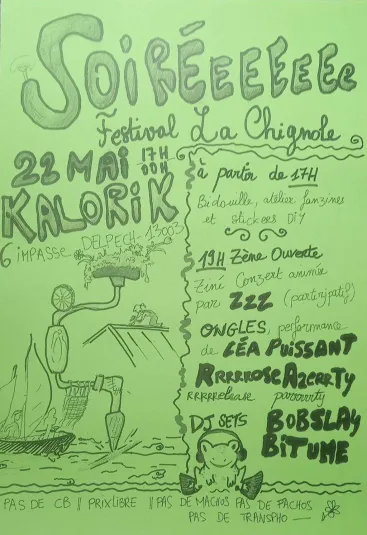 SOIRÉEEEEEE
Festival La Chignole
22 MAI 17H
00H
KALORIK
6 IMPASSE DELPECH - 13003
à partir de 17H
Bidouille, atelier fanzines
et stickers DIY
19H Zène Ouverte
Ziné Conzert animée
par ZZZ (participatif)
ONGLES, performance
de LÉA PUISSANT
RRRRROSE AZERRTY
RRRRRelease parrrrrty
DJ SETS BOBSLAY
BITUME
PAS DE CB || PRIX LIBRE || PAS DE MACHOS PAS DE FACHOS
PAS DE TRANSPHO